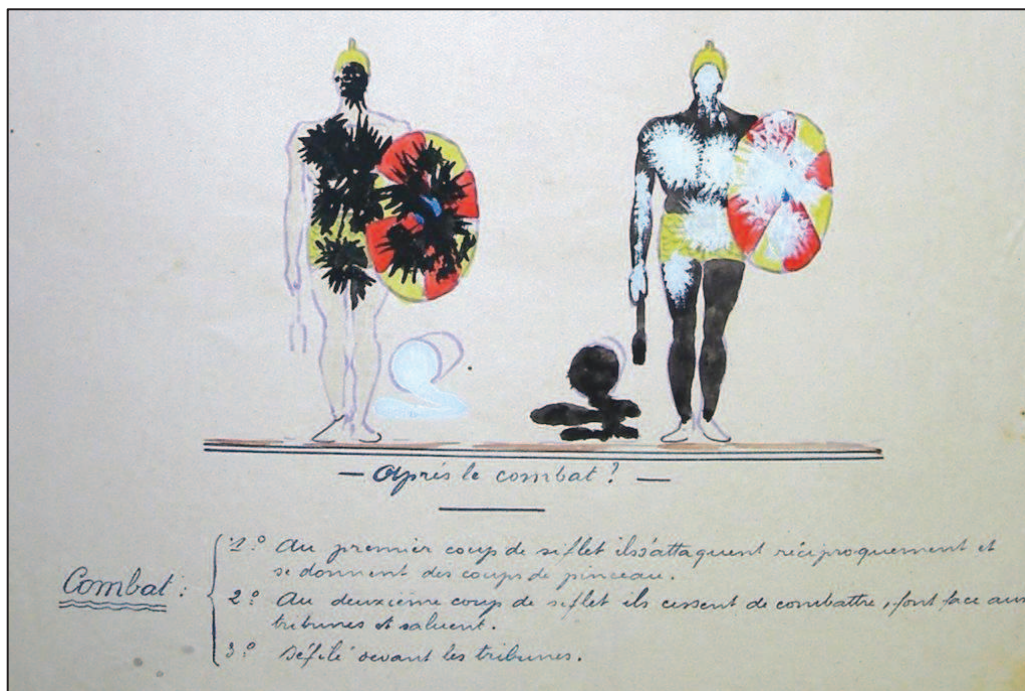 — Après le combat ! —
Combat :
1º Au premier coup de siflet ils s'attaquent réciproquement et
se donnent des coups de pinceau.
2º Au deuxième coup de siflet ils cessent de combattre, font face aux
tribunes et saluent.
3º Défilé devant les tribunes.